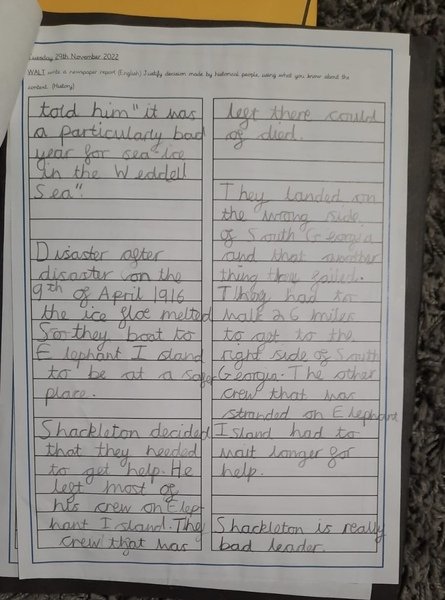 Tuesday 29th November 2022
WALT write a newspaper report (English) Justify decision made by historical people, using what you know about the
context. (History)
told him "it was
a particularly bad
year for sea ice
in the Weddell
Sea".
Disaster after
disaster on the
9th of April 1916
the ice floe melted
So they boat to
Elephant Island
to be at a safer
place.
Shackleton decided
that they needed
to get help. He
left most of
his crew on Elep-
hant Island. They
crew that was
left there could
of died.
They landed on
the wrong side
of South Georgia
and that another
thing they failed.
They had to
walk 26 miles
to get to the
right side of South
Georgia. The other
crew that was
stranded on Elephant
Island had to
wait longer for
help.
Shackleton is really
bad leader.